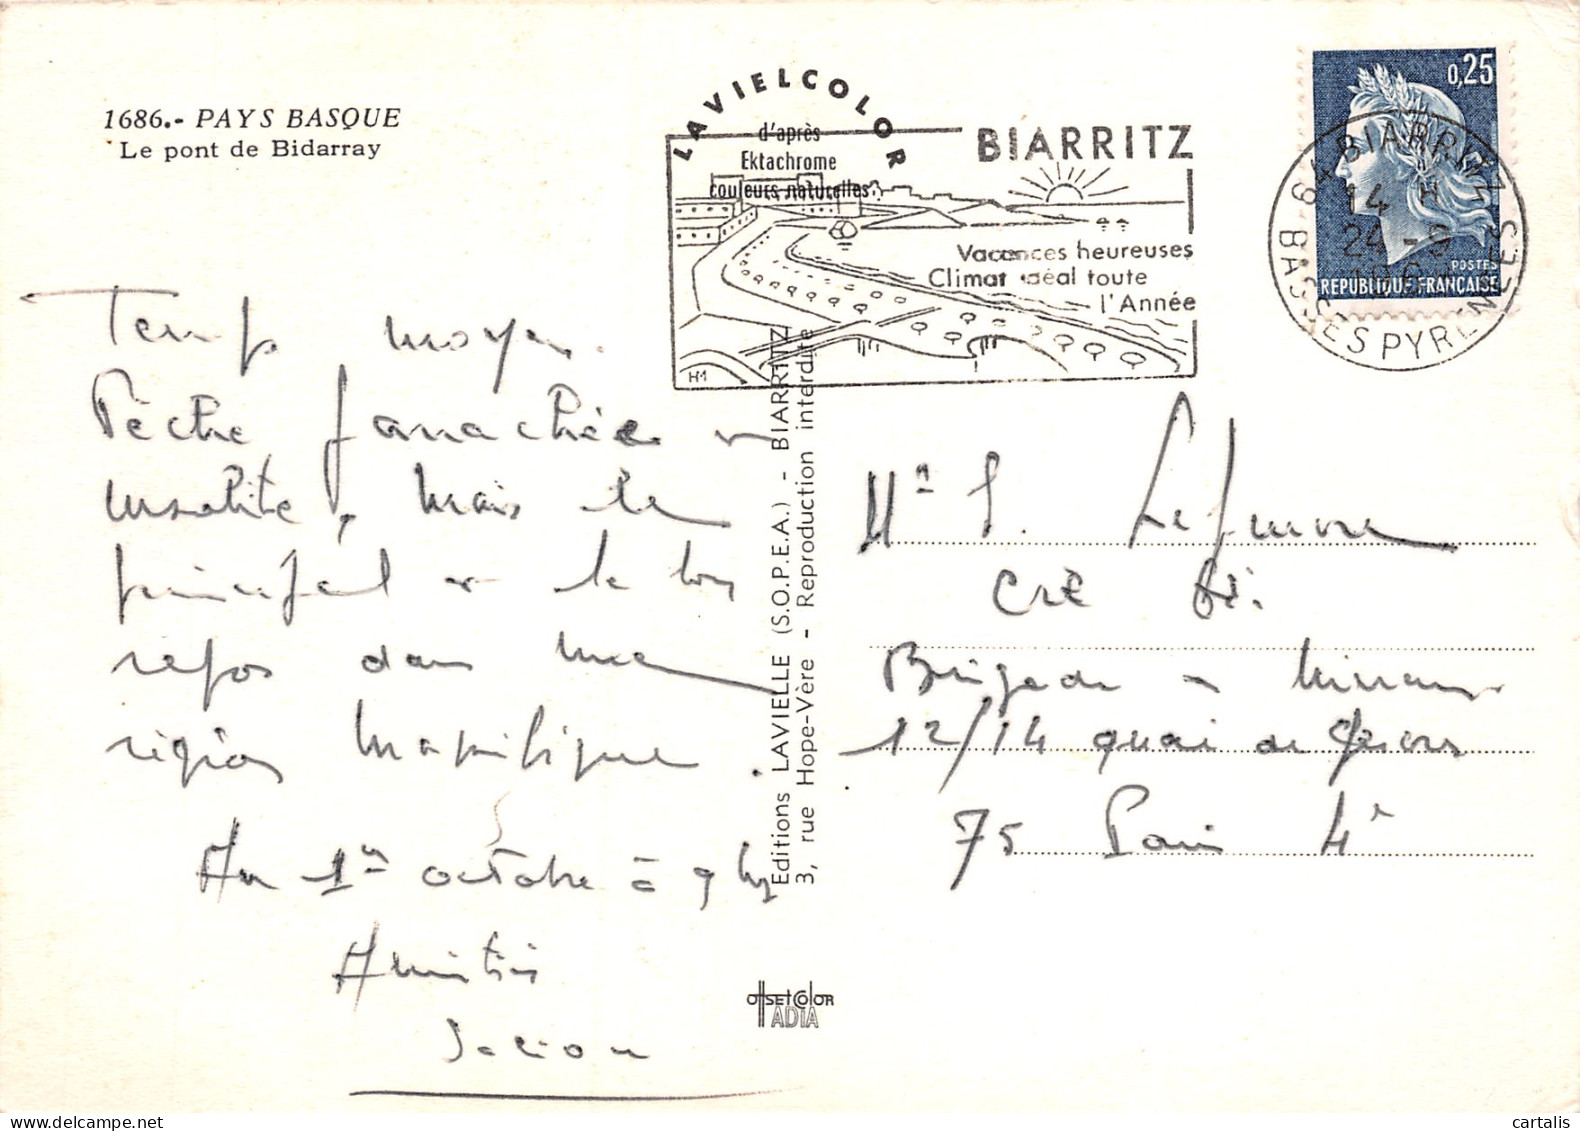 1686.- PAYS BASQUE
Le pont de Bidarray
LAVIELCOLOR
d'après
Ektachrome
couleurs naturelles
BIARRITZ
Vacances heureuses
Climat idéal toute
l'Année
HM
0,25
POSTES
REPUBLIQUE FRANÇAISE
64 BIARRITZ
14 H
24 - 9
BASSES PYRENEES
Temps moyen.
Pêche panachée et
insolite, mais le
principal est le bon
repos dans une
région magnifique.
Au 1er octobre à 9h
Amitiés
Editions LAVIELLE (S.O.P.E.A.) - BIARRITZ
3, rue Hope-Vère - Reproduction interdite
OffSET COlOR
IADIA
Mr
Brigade
12/14 quai de Gesvres
75 Paris 4e
cartalis